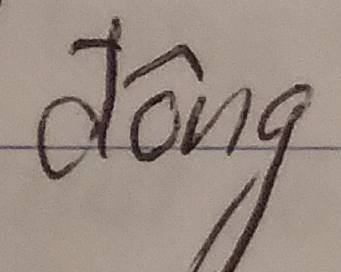 đông